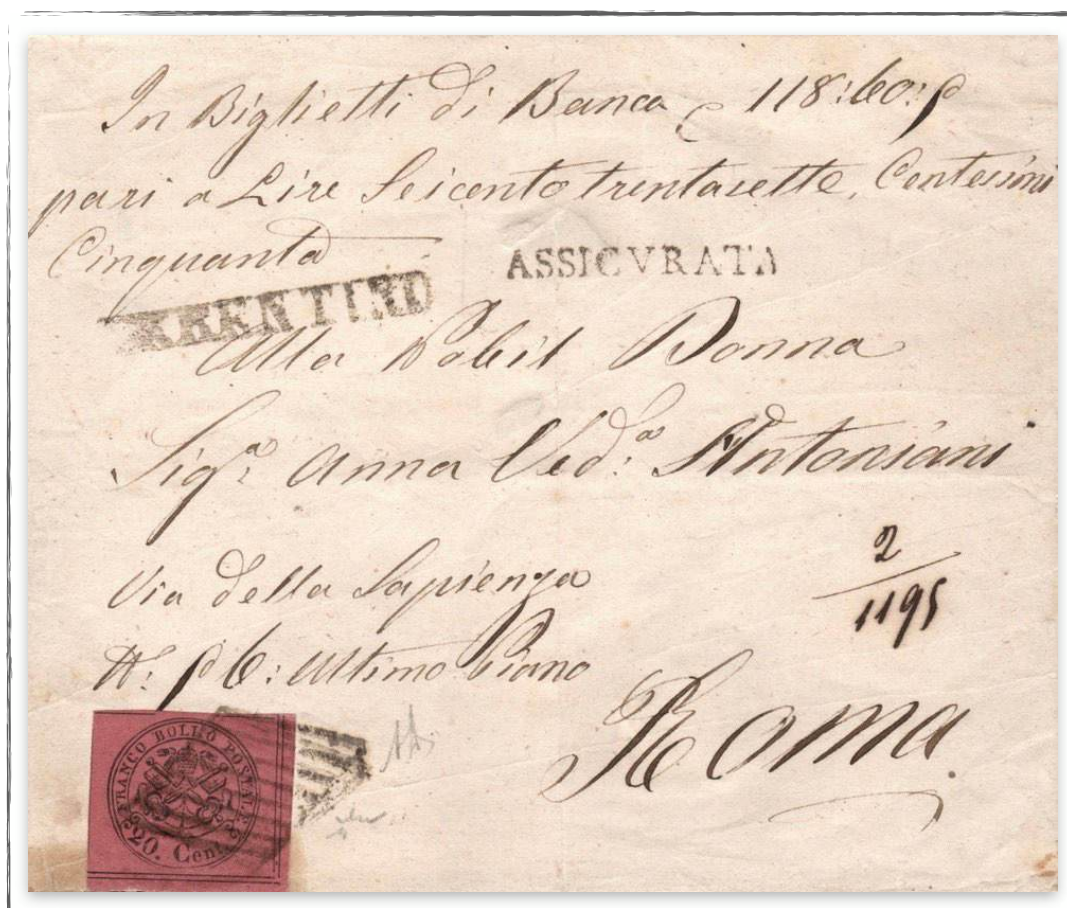 In Biglietti di Banca 118:60:
pari a Lire Seicento trentasette, Centesimi
Cinquanta
ASSICVRATA
Alla Nobil Donna
Sig.ª Anna Ved.ª Antoniani
Via della Sapienza
2
1195
Ultimo Piano
Roma
FRANCO BOLLO POSTALE
20. Cent.